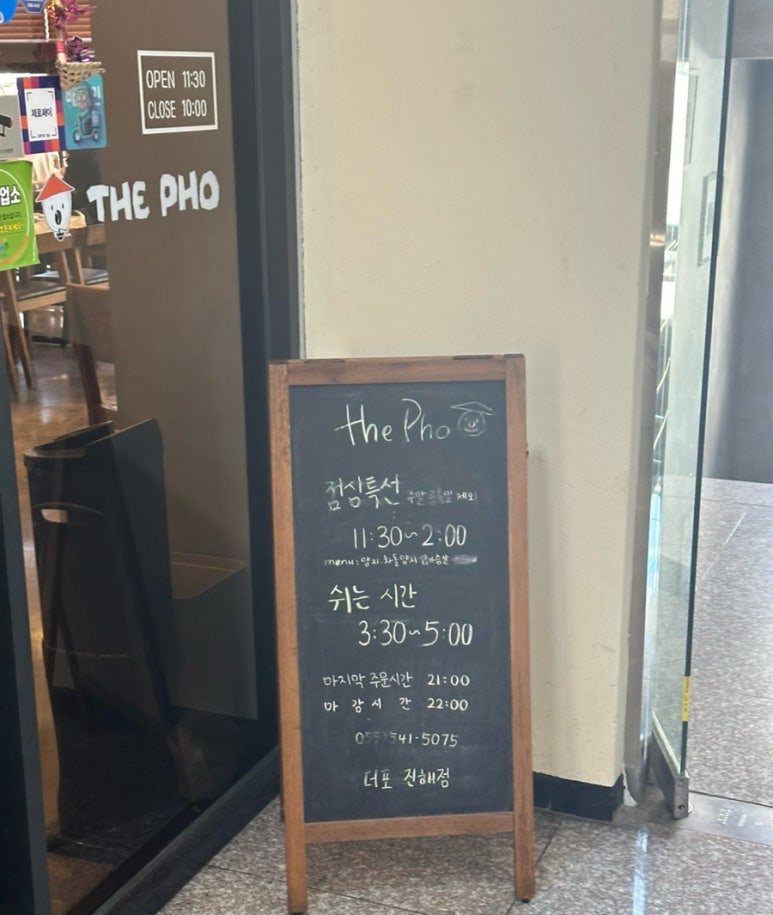 OPEN 11:30
CLOSE 10:00
제로페이
업소
THE PHO
the Pho
점심특선 주말 공휴일 제외
11:30~2:00
menu: 양지. 차돌양지
쉬는 시간
3:30~5:00
마지막 주문시간 21:00
마 감 시 간 22:00
055)541-5075
더포 진해점